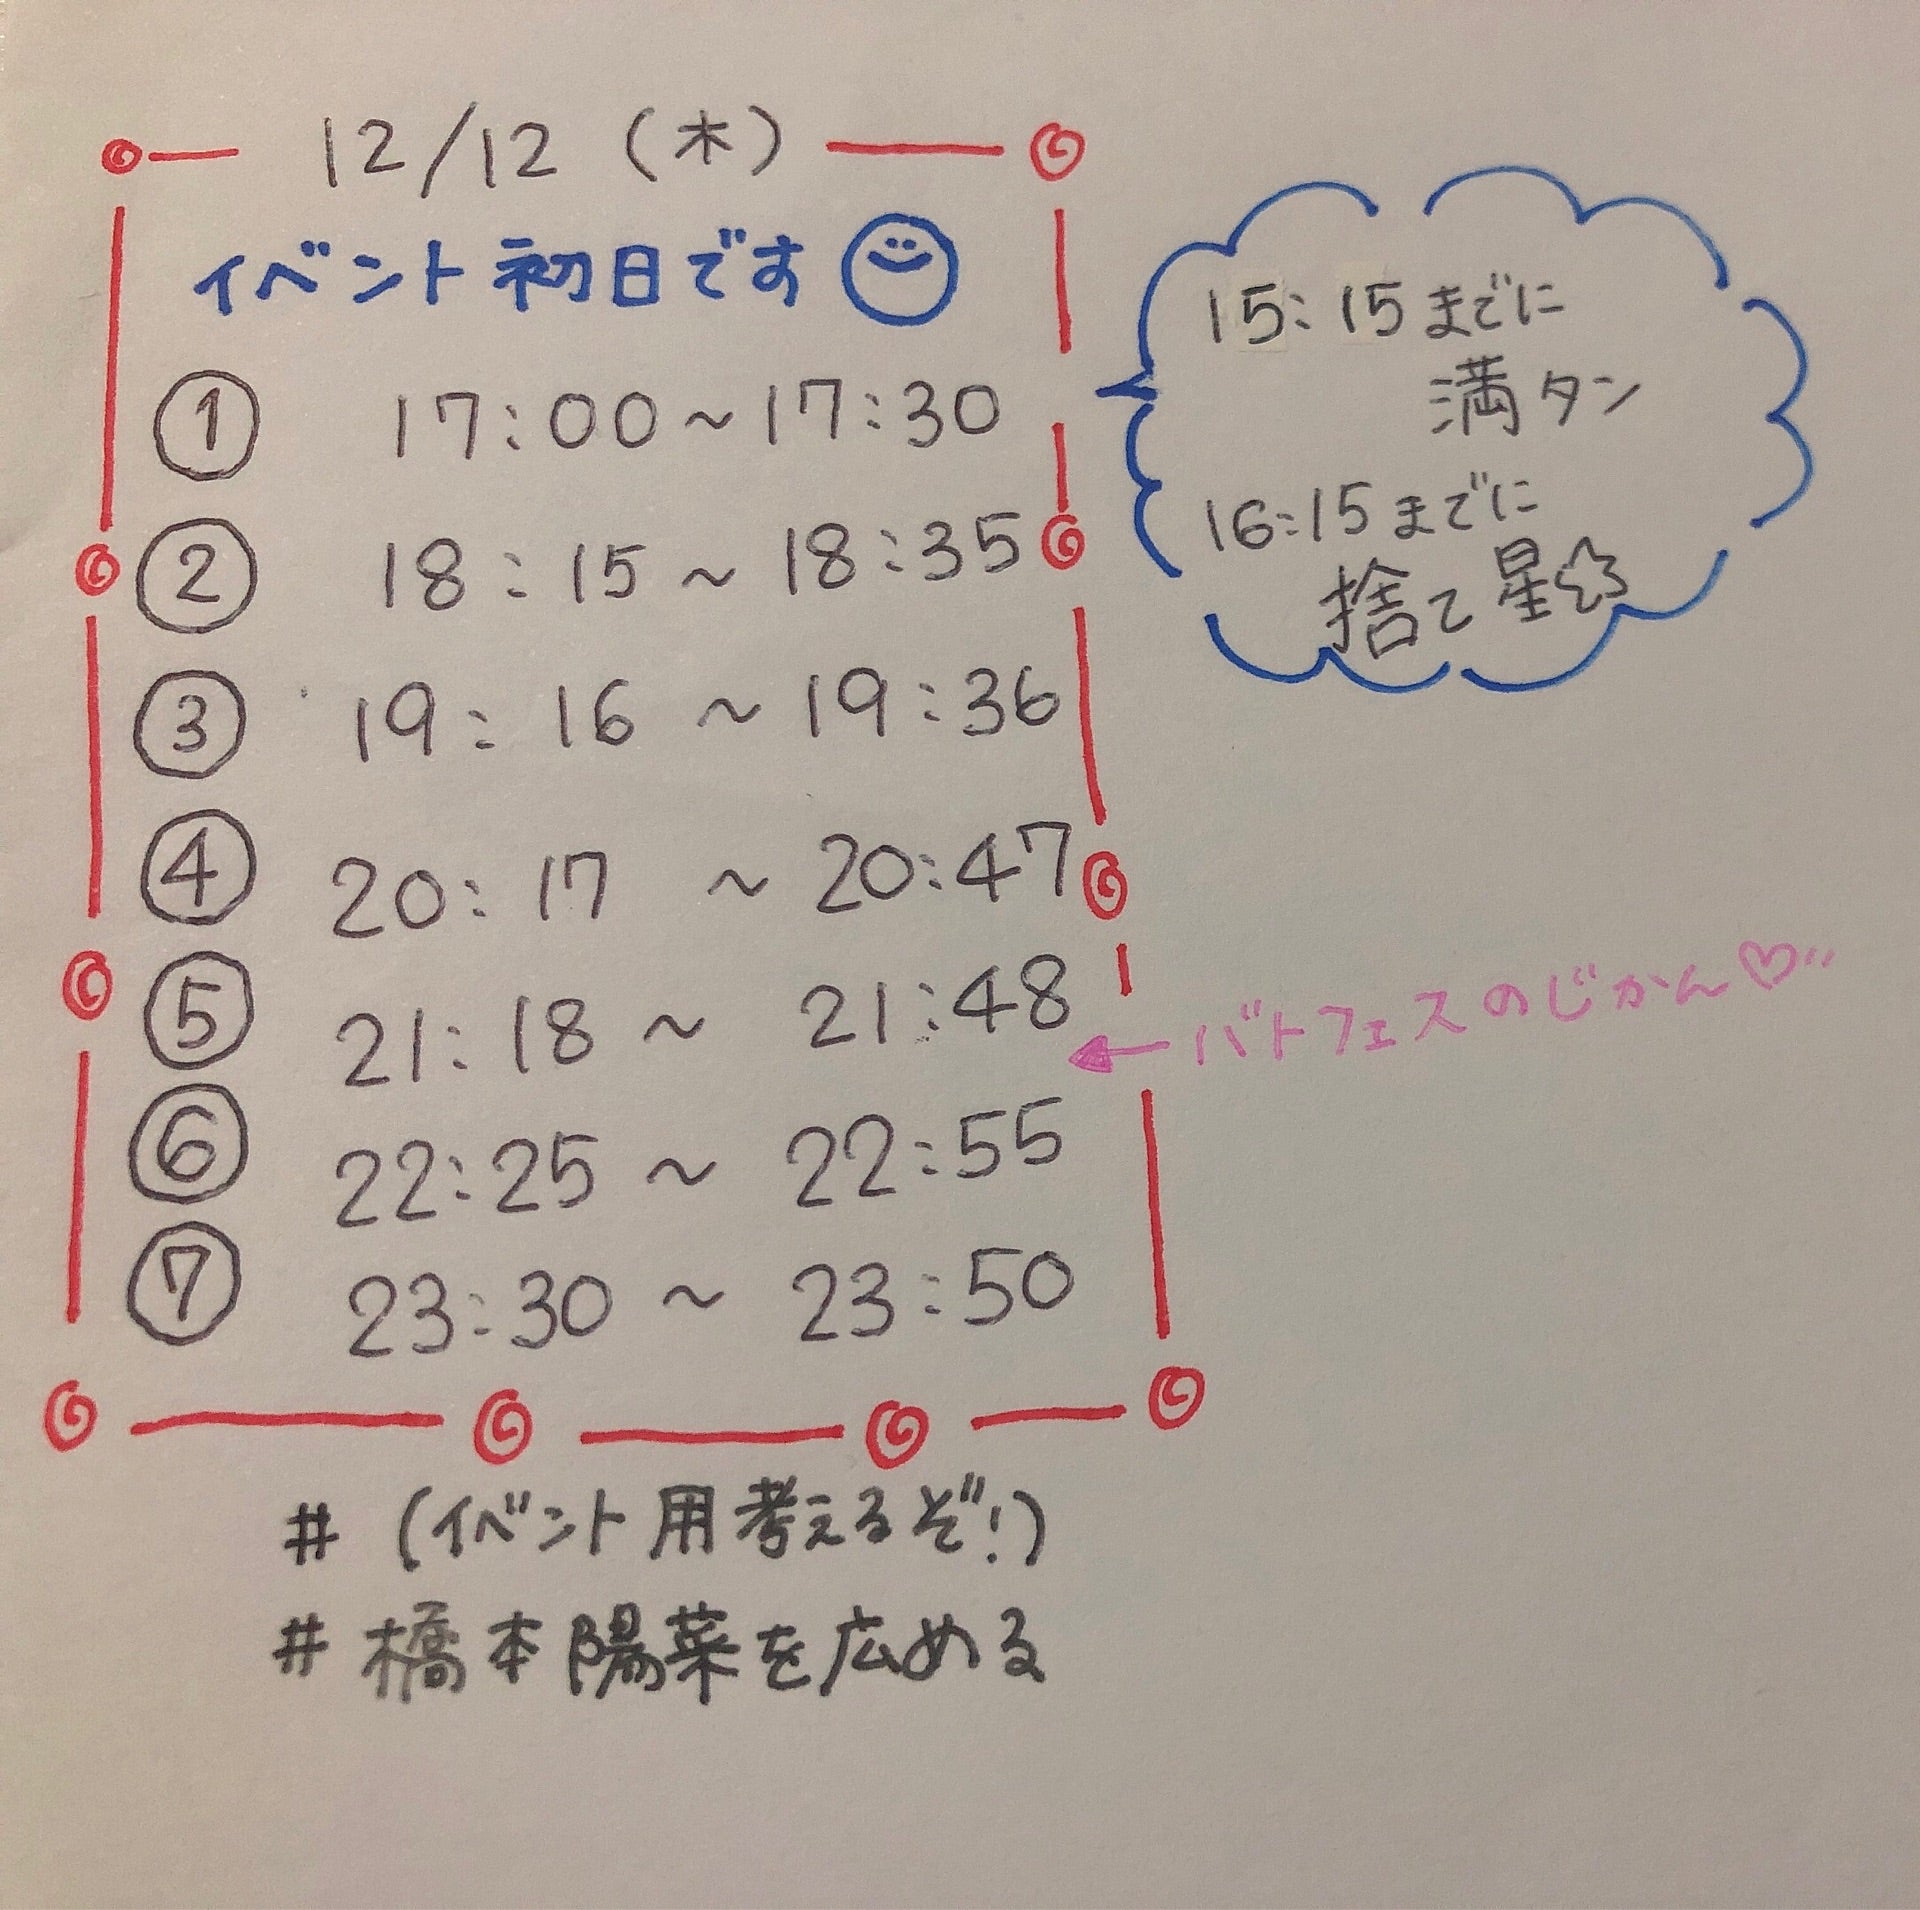 12/12 (木)
イベント初日です
① 17:00~17:30
② 18:15~18:35
③ 19:16~19:36
④ 20:17~20:47
⑤ 21:18~21:48
←バトフェスのじかん♡"
⑥ 22:25~22:55
⑦ 23:30~23:50
15:15までに
満タン
16:15までに
捨て星☆
#(イベント用考えるぞ!)
#橋本陽菜を広める